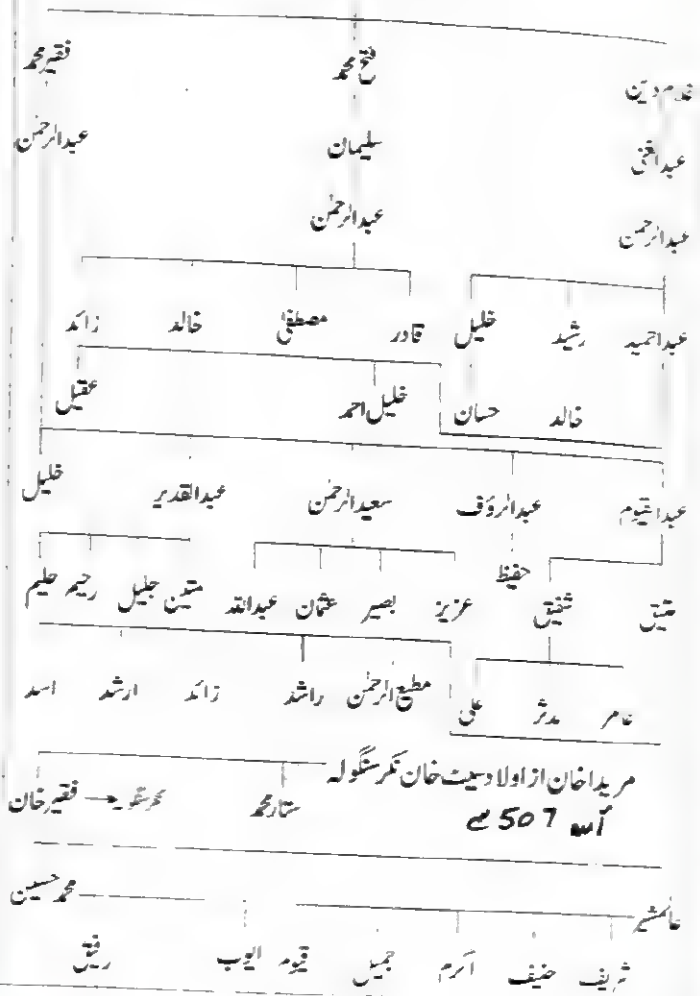 فتح محمد فقیر محمد
عبدالغنی سلیمان عبدالرحمٰن
عبدالرحمٰن عبدالرحمٰن
عبدالحمید رشید خلیل قادر مصطفٰی خالد زائد
خالد حسان خلیل احمد عقیل
عبدالقیوم عبدالرؤف سعیدالرحمٰن عبدالقدیر خلیل
عتیق شفیق حفیظ عزیز بصیر عثمان عبداللہ متین جلیل رحیم حلیم
عامر مدثر علی مطیع الرحمٰن راشد زائد ارشد اسد
مریدا خان از اولاد سیت خان نکر سنگولہ
507 سے
ستار محمد فقیر خان
عالمشیر محمد حسین
شریف حنیف اکرم جمیل قیوم ایوب رفیق